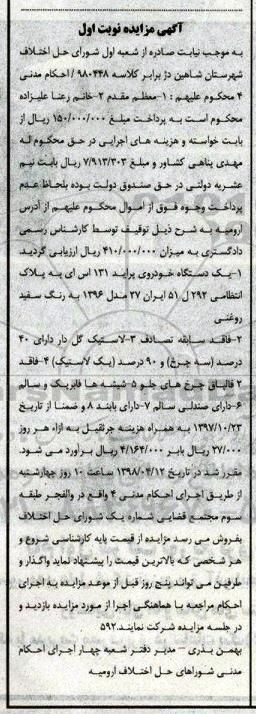 آگهی مزایده نوبت اول
به موجب نیابت صادره از شعبه اول شورای حل اختلاف
شهرستان شاهین دژ برابر کلاسه ۹۸۰۴۴۸ / احکام مدنی
۴ محکوم علیهم : ۱-معظم مقدم ۲-خانم رعنا علیزاده
محکوم است به پرداخت مبلغ ۱۵۰/۰۰۰/۰۰۰ ریال از
بابت خواسته و هزینه های اجرایی در حق محکوم له
مهدی پناهی کشاور و مبلغ ۷/۹۱۳/۳۰۳ ریال بابت نیم
عشریه دولتی در حق صندوق دولت بوده بلحاظ عدم
پرداخت وجوه فوق از اموال محکوم علیهم از آدرس
ارومیه به شرح ذیل توقیف توسط کارشناس رسمی
دادگستری به میزان ۴۱۰/۰۰۰/۰۰۰ ریال ارزیابی گردید.
۱-یک دستگاه خودروی پراید ۱۳۱ اس ای به پلاک
انتظامی ۲۹۲ ل ۵۱ ایران ۲۷ مدل ۱۳۹۶ به رنگ سفید
روغنی
۲-فاقد سابقه تصادف ۳-لاستیک گل دار دارای ۴۰
درصد (سه چرخ) و ۹۰ درصد (یک لاستیک) ۴-فاقد
۲ قالپاق چرخ های جلو ۵-شیشه ها فابریک و سالم
۶-دارای صندلی سالم ۷-دارای باند ۸ و ضمنا از تاریخ
۱۳۹۷/۱۰/۲۳ به همراه هزینه جرثقیل به ازاء هر روز
۲۷/۰۰۰ ریال بابر ۴/۱۶۴/۰۰۰ ریال برآورد می شود.
مقرر شد در تاریخ ۱۳۹۸/۰۴/۱۲ ساعت ۱۰ روز چهارشنبه
از طریق اجرای احکام مدنی ۴ واقع در والفجر طبقه
سوم مجتمع قضایی شماره یک شورای حل اختلاف
بفروش می رسد مزایده از قیمت پایه کارشناسی شروع و
هر شخصی که بالاترین قیمت را پیشنهاد نماید واگذار و
طرفین می تواند پنج روز قبل از موعد مزایده به اجرای
احکام مراجعه با هماهنگی اجرا از مورد مزایده بازدید و
در جلسه مزایده شرکت نمایند.۵۹۲
بهمن بدری – مدیر دفتر شعبه چهار اجرای احکام
مدنی شوراهای حل اختلاف ارومیه